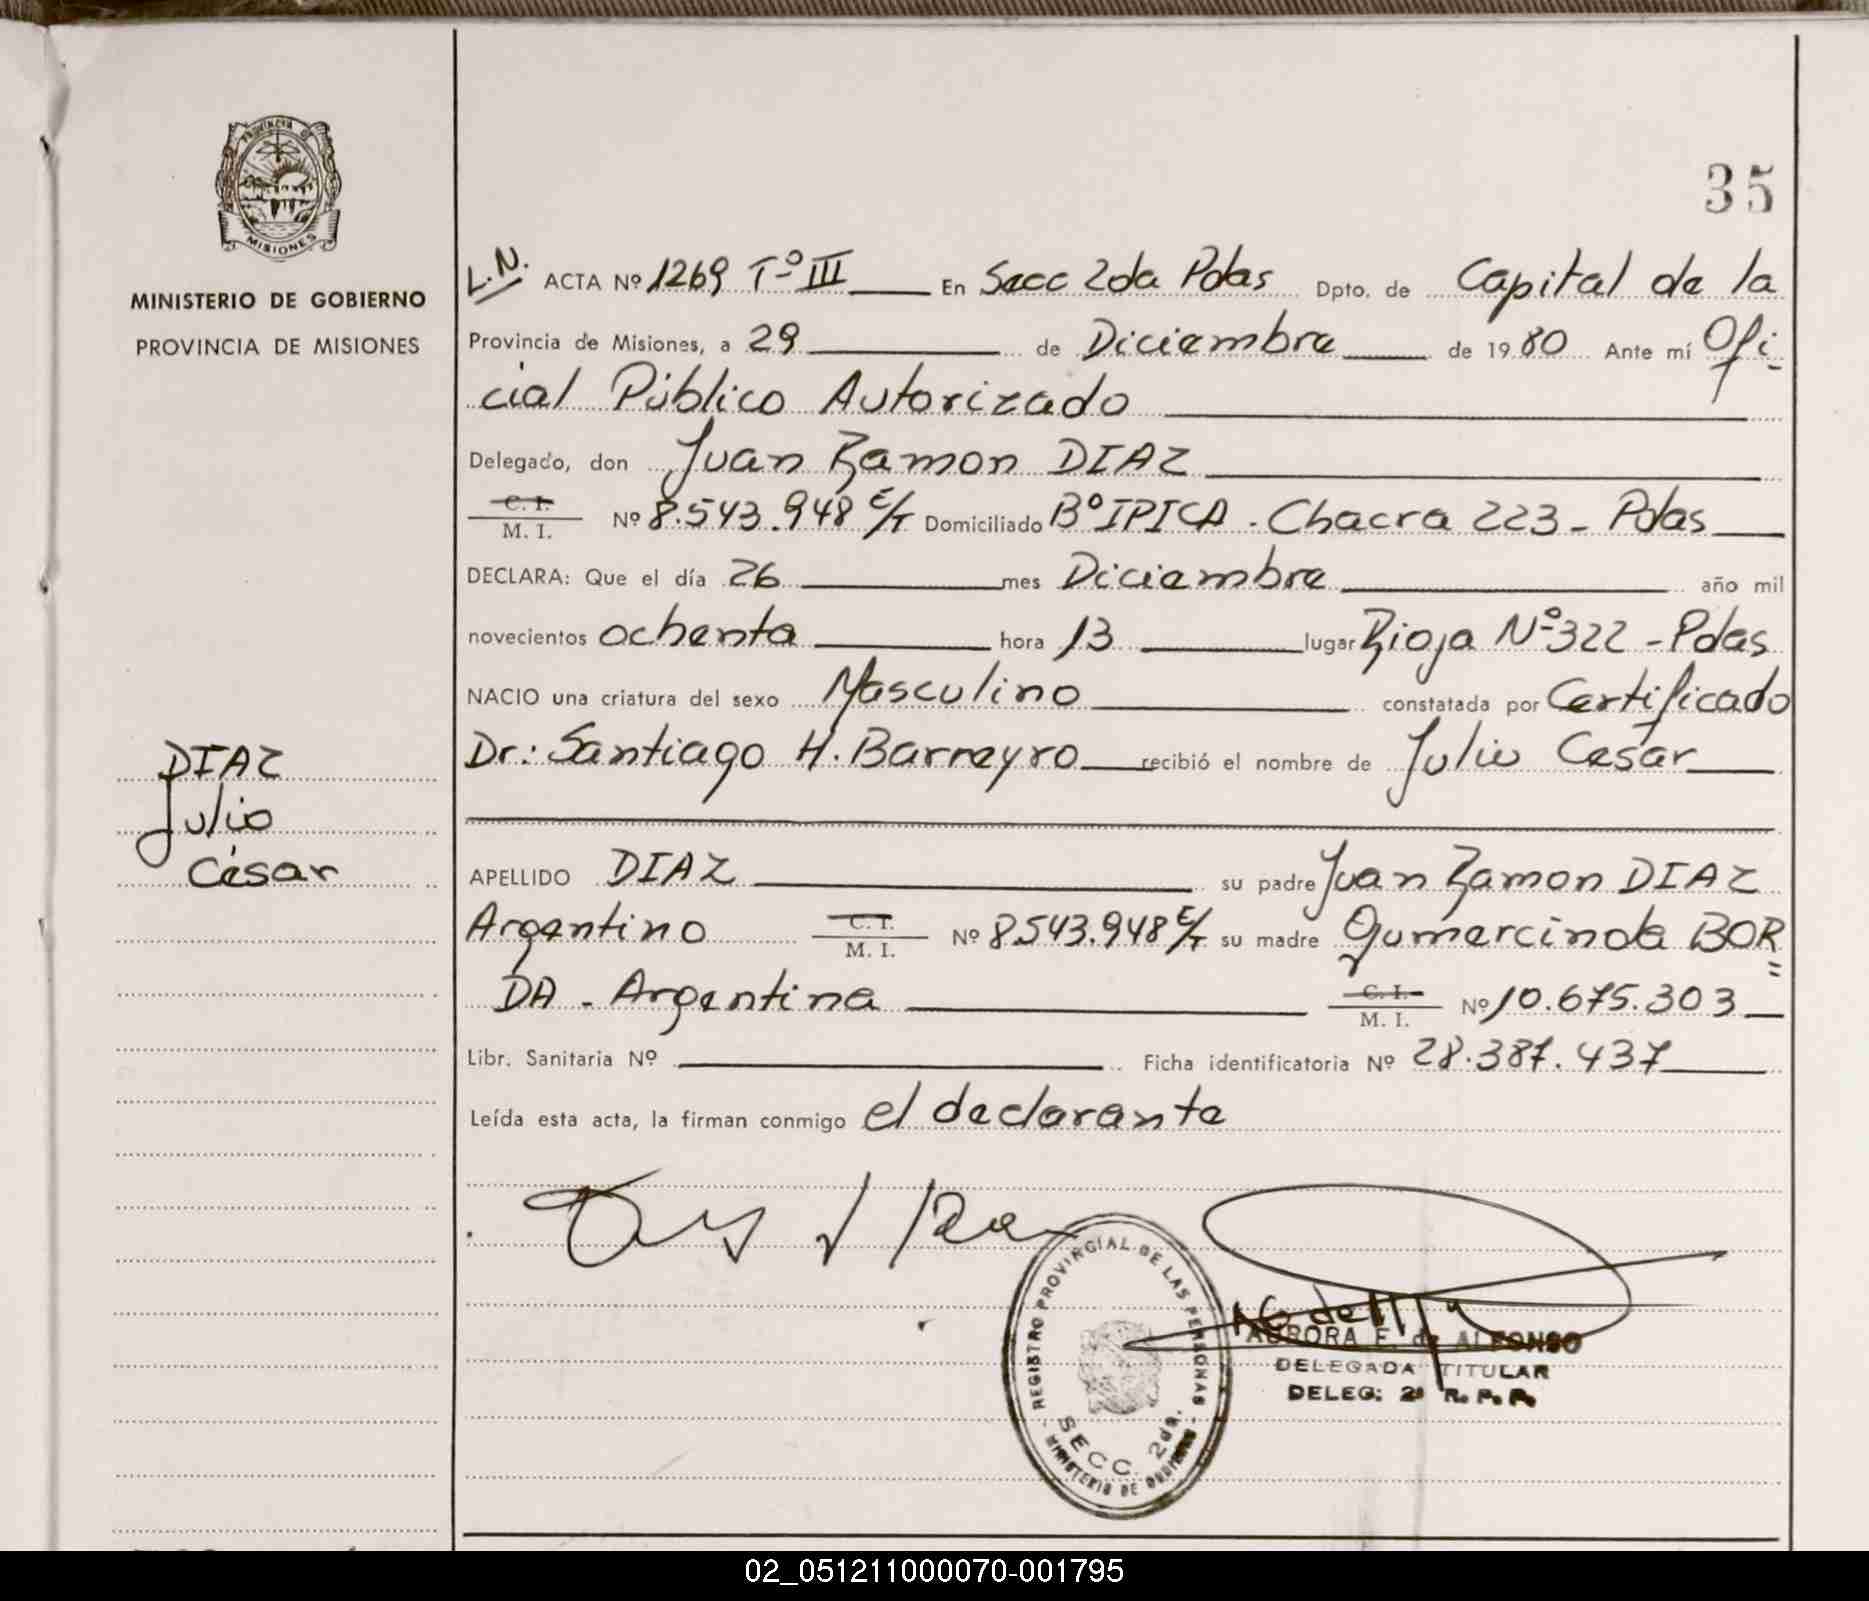 PROVINCIA DE
MISIONES
MINISTERIO DE GOBIERNO
PROVINCIA DE MISIONES
DIAZ
Julio
César
35
L.N. ACTA Nº 1269 Tº III En Secc 2da Pdas Dpto. de Capital de la
Provincia de Misiones, a 29 de Diciembre de 1980 Ante mí Ofi-
cial Público Autorizado
Delegado, don Juan Ramon DIAZ
C. I.
M. I. Nº 8.543.948 E/T Domiciliado Bº IPICA - Chacra 223 - Pdas
DECLARA: Que el día 26 mes Diciembre año mil
novecientos ochenta hora 13 lugar Rioja Nº 322 - Pdas
NACIO una criatura del sexo Masculino constatada por Certificado
Dr.: Santiago H. Barreyro recibió el nombre de Julio César
APELLIDO DIAZ su padre Juan Ramon DIAZ
Argentino C. I.
M. I. Nº 8.543.948 E/T su madre Gumercinda BOR=
DA - Argentina C. I.
M. I. Nº 10.675.303
Libr. Sanitaria Nº Ficha identificatoria Nº 28.387.437
Leída esta acta, la firman conmigo el declarante
REGISTRO PROVINCIAL DE LAS PERSONAS
SECC. 2da.
MINISTERIO DE GOBIERNO
AURORA E. de ALFONSO
DELEGADA TITULAR
DELEG: 2ª R. P. P.
02_051211000070-001795